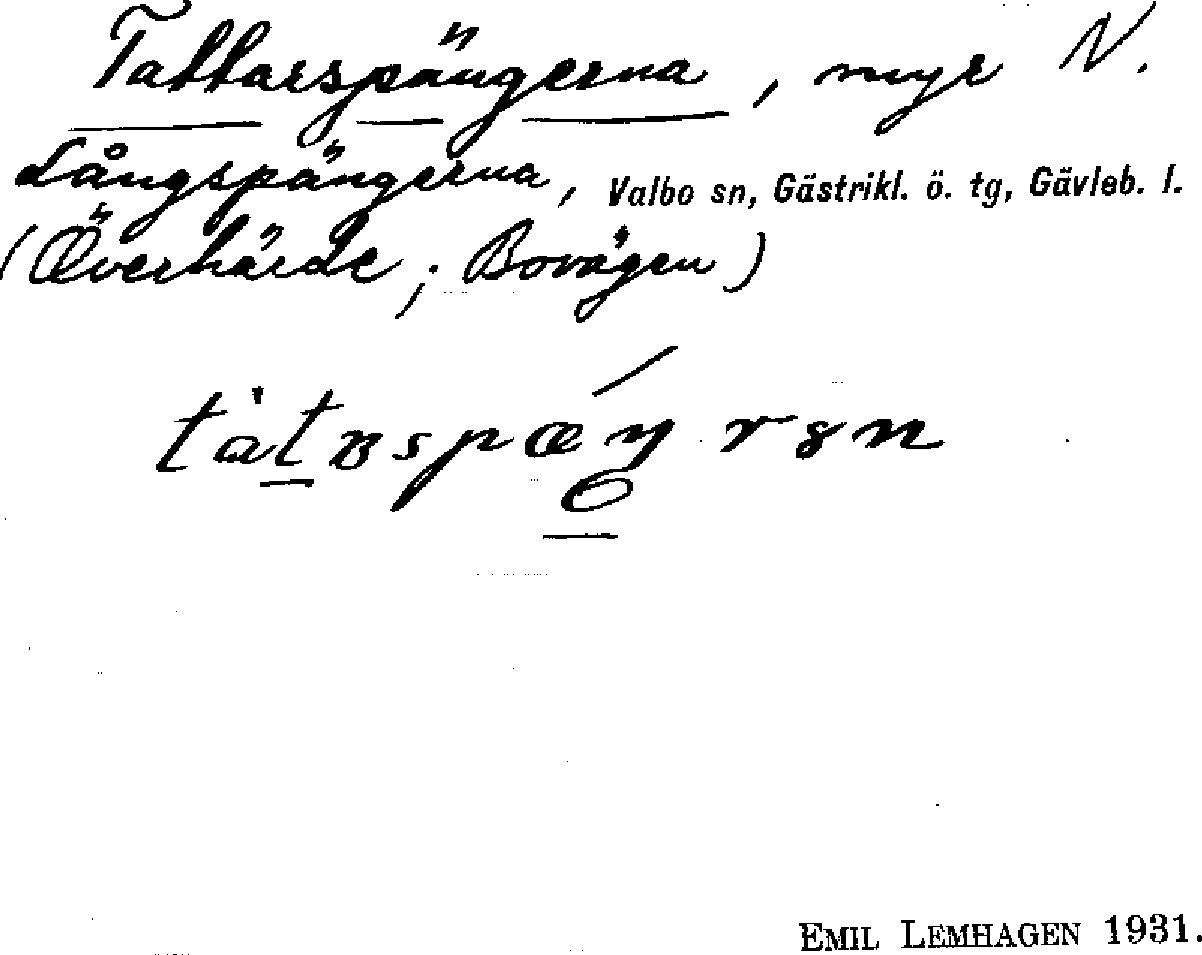 Tattarspängerna, myr N.
Långspängerna, Valbo sn, Gästrikl. ö. tg, Gävleb. l.
(Överhärde; Bovägen)
EMIL LEMHAGEN 1931.